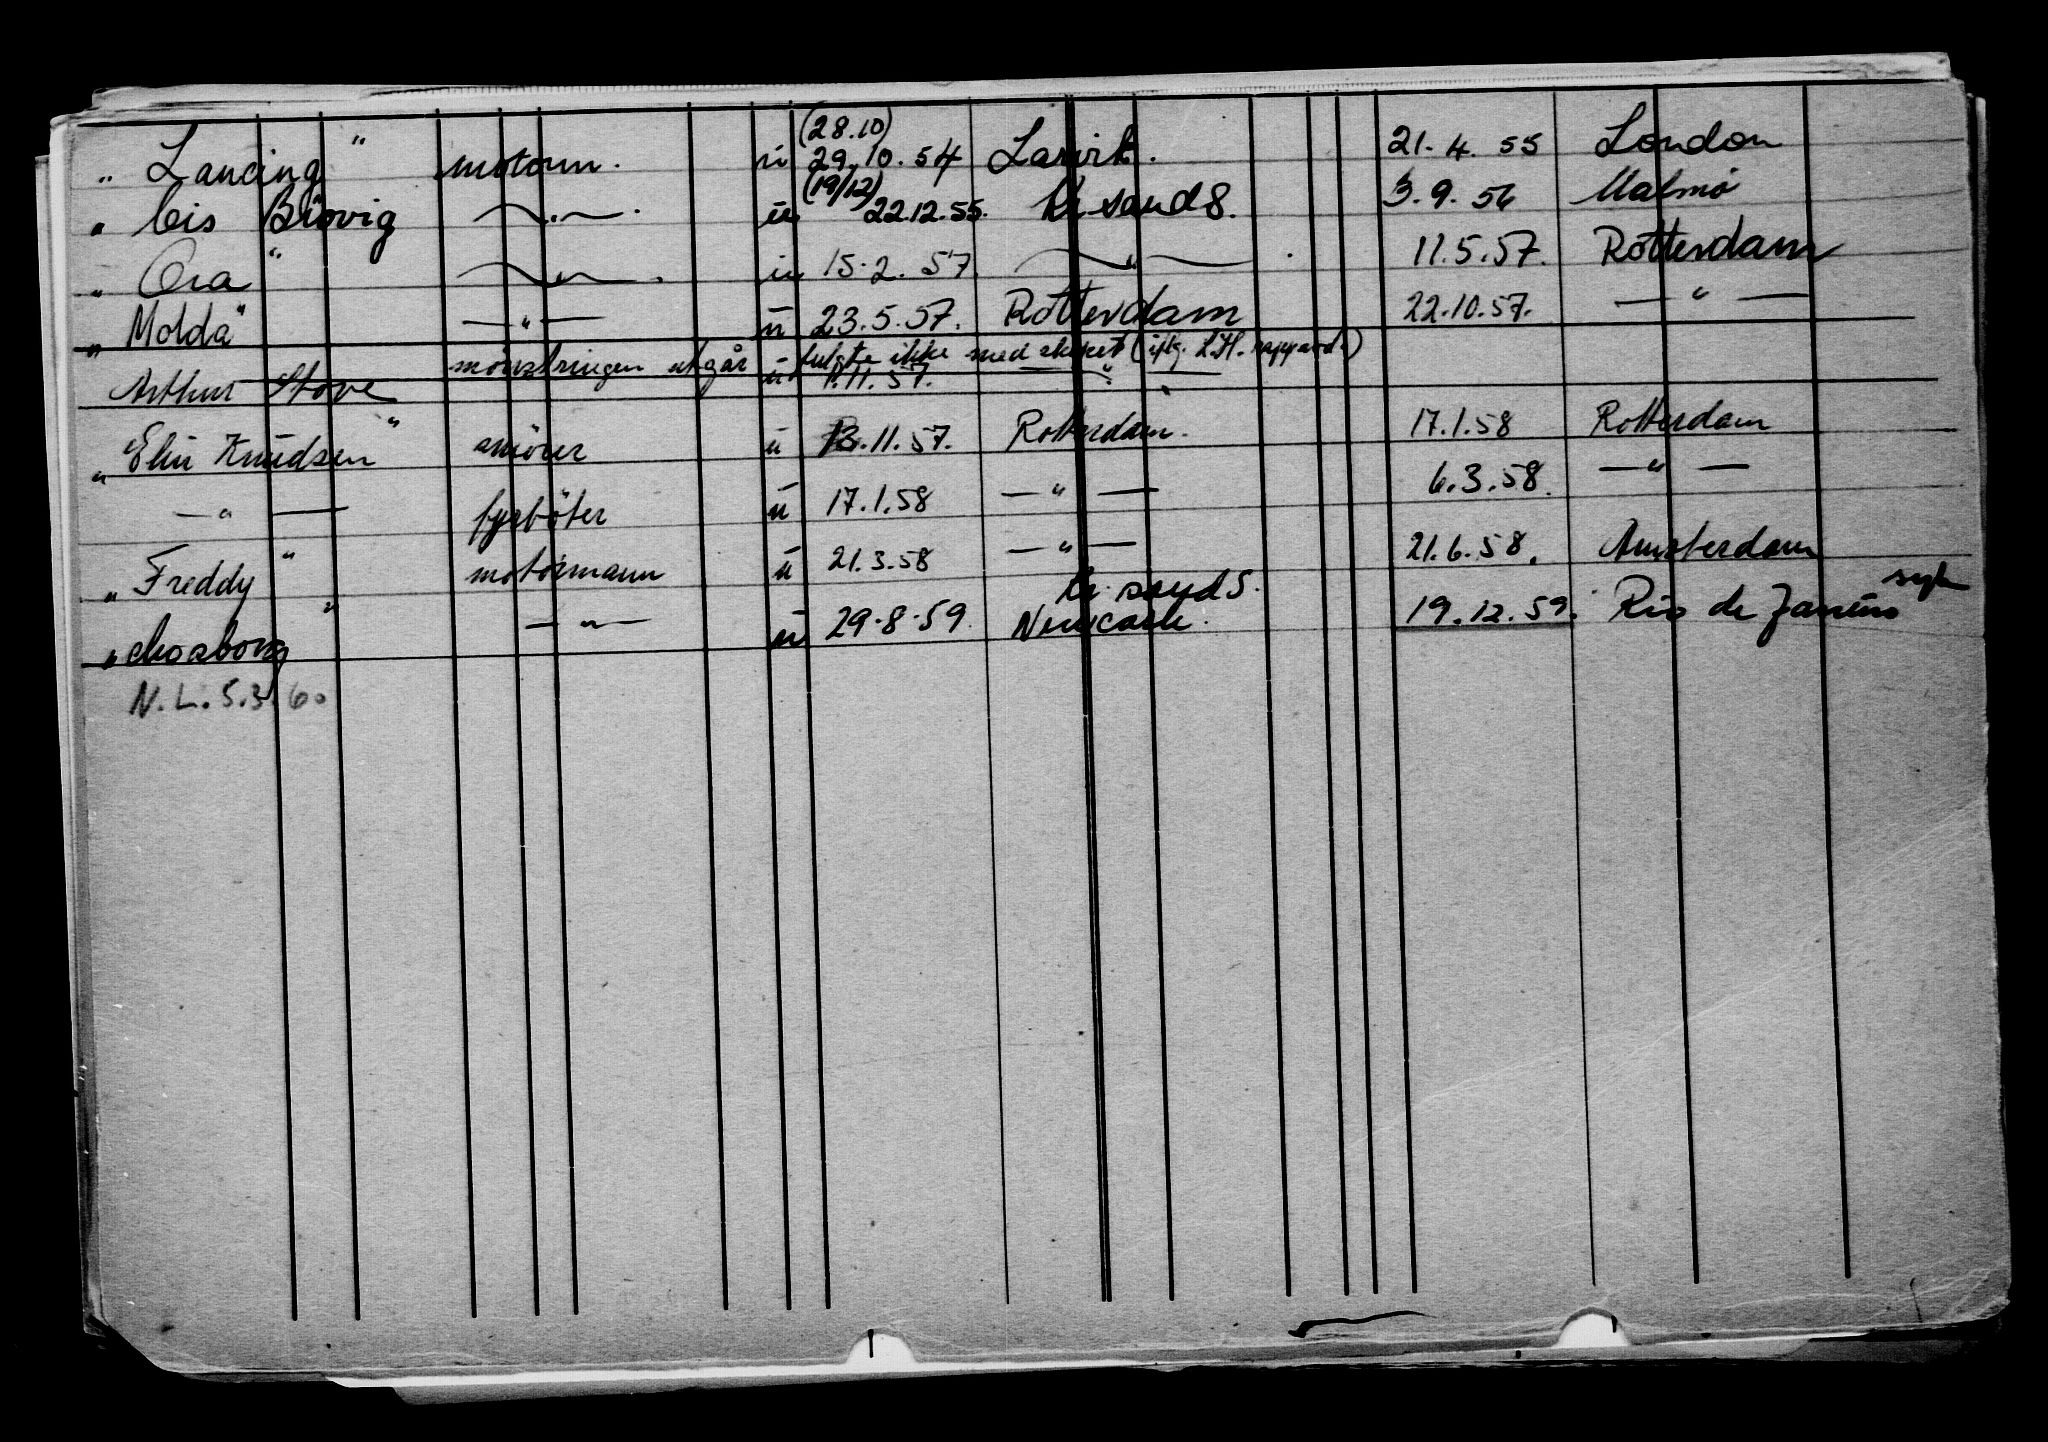 (28.10)
„ Lancing " motorm. u 29.10.54 Larvik. 21. 4. 55 London
(19/12)
„ Cis Brøvig —„—. u 22.12.55. Kr sand S. 3. 9. 56 Malmø
„ Ora " —„—. u 15.2. 57 —„— . 11.5.57. Rotterdam
„ Molda" —„— u 23.5.57. Rotterdam 22.10.57. —„—
„ Arthur Stove mønstringen utgår u fulgte ikke med skipet (iflg. rapport.)
" 1.11.57. —„—
„ Elin Knudsen smører u 13.11.57. Rotterdam. 17.1.58 Rotterdam
—„— fyrbøter u 17.1.58 —„— 6.3.58. —„—
„ Freddy " motormann u 21.3.58 —„— 21.6.58. Amsterdam
Kr. sand S. syk
„ " —„— u 29.8.59. Newcastle. 19.12.59. Rio de Janeiro
N.L. 5.3.60